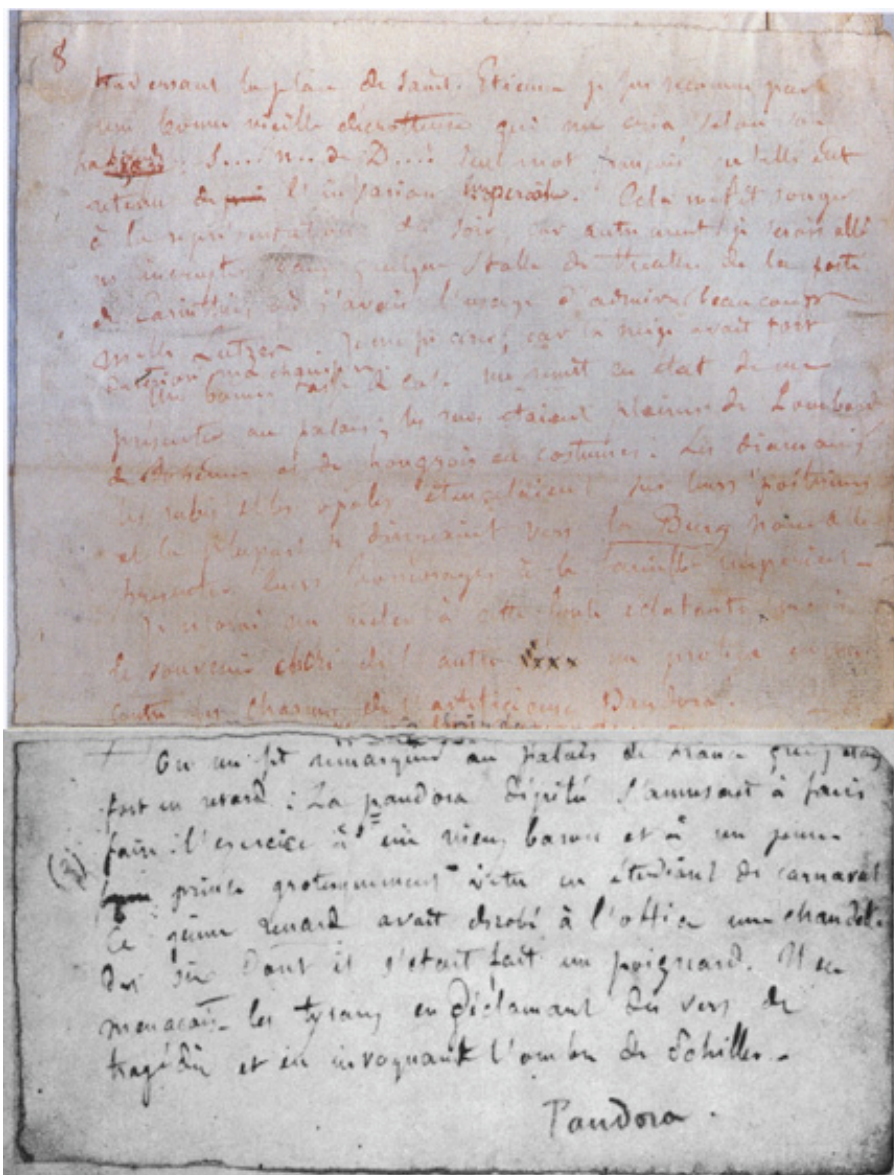 8
traversant la place de Saint-Etienne je fus reconnu par
une bonne vieille décrotteuse qui me cria, selon son
S... n.. de D...! seul mot français qu'elle eut
retenu de l'invasion impériale. Cela me fit songer
à la représentation du soir, car autrement, je serais allé
m'incruster dans quelque stalle du théâtre de la porte
de Carinthie, où j'avais l'usage d'admirer beaucoup
Mlle Lutzer. Je me fis cirer, car la neige avait fort
détérioré ma chaussure.
Une bonne tasse de café me remit en état de me
présenter au palais; les rues étaient pleines de Lombards
de Bohêmes et de hongrois en costumes. Les diamants
les rubis et les opales étincelaient sur leurs poitrines
et la plupart se dirigeaient vers la Burg pour aller
présenter leurs hommages à la famille impériale.
Je n'osai me mêler à cette foule éclatante, mais
le souvenir chéri de l'autre xxx me protégea encore
contre les charmes de l'artificieuse Pandora.
On me fit remarquer au palais de France que j'étais
fort en retard : La pandora dépitée s'amusait à faire
faire l'exercice à un vieux baron et à un jeune
(3)
prince grotesquement vêtu en étudiant de carnaval
Ce jeune renard avait dérobé à l'office une chandelle
des six dont il s'était fait un poignard. Il en
menaçait les tyrans en déclamant des vers de
tragédie et en invoquant l'ombre de Schiller.
Pandora.